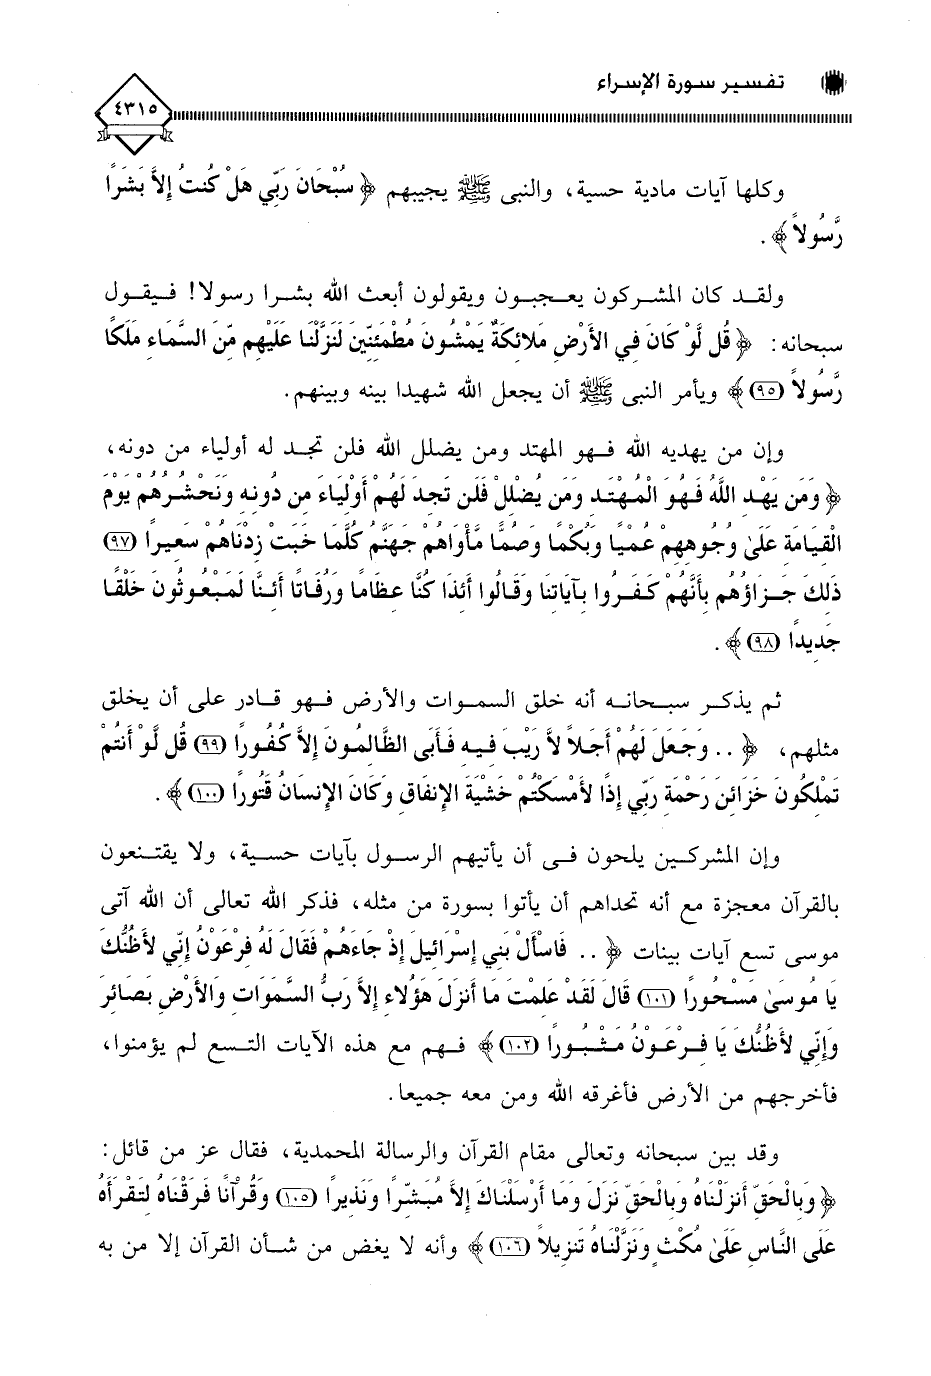 تفسير سورة الإسراء
٤٣١٥
وكلها آيات مادية حسية، والنبى ﷺ يجيبهم ﴿ سُبْحَانَ رَبِّي هَلْ كُنتُ إِلاَّ بَشَرًا
رَّسُولاً ﴾ .
ولقد كان المشركون يعجبون ويقولون أبعث الله بشرا رسولا! فيقول
سبحانه: ﴿ قُل لَّوْ كَانَ فِي الأَرْضِ مَلائِكَةٌ يَمْشُونَ مُطْمَئِنِّينَ لَنَزَّلْنَا عَلَيْهِم مِّنَ السَّمَاءِ مَلَكًا
رَّسُولاً (٩٥) ﴾ ويأمر النبى ﷺ أن يجعل الله شهيدا بينه وبينهم.
وإن من يهديه الله فهو المهتد ومن يضلل الله فلن تجد له أولياء من دونه،
﴿ وَمَن يَهْدِ اللَّهُ فَهُوَ الْمُهْتَدِ وَمَن يُضْلِلْ فَلَن تَجِدَ لَهُمْ أَوْلِيَاءَ مِن دُونِهِ وَنَحْشُرُهُمْ يَوْمَ
الْقِيَامَةِ عَلَىٰ وُجُوهِهِمْ عُمْيًا وَبُكْمًا وَصُمًّا مَّأْوَاهُمْ جَهَنَّمُ كُلَّمَا خَبَتْ زِدْنَاهُمْ سَعِيرًا (٩٧)
ذَلِكَ جَزَاؤُهُم بِأَنَّهُمْ كَفَرُوا بِآيَاتِنَا وَقَالُوا أَئِذَا كُنَّا عِظَامًا وَرُفَاتًا أَئِنَّا لَمَبْعُوثُونَ خَلْقًا
جَدِيدًا (٩٨) ﴾ .
ثم يذكر سبحانه أنه خلق السموات والأرض فهو قادر على أن يخلق
مثلهم، ﴿ .. وَجَعَلَ لَهُمْ أَجَلاً لاَّ رَيْبَ فِيهِ فَأَبَى الظَّالِمُونَ إِلاَّ كُفُورًا (٩٩) قُل لَّوْ أَنتُمْ
تَمْلِكُونَ خَزَائِنَ رَحْمَةِ رَبِّي إِذًا لأَمْسَكْتُمْ خَشْيَةَ الإِنفَاقِ وَكَانَ الإِنسَانُ قَتُورًا (١٠٠) ﴾ .
وإن المشركين يلحون فى أن يأتيهم الرسول بآيات حسية، ولا يقتنعون
بالقرآن معجزة مع أنه تحداهم أن يأتوا بسورة من مثله، فذكر الله تعالى أن الله آتى
موسى تسع آيات بينات ﴿ .. فَاسْأَلْ بَنِي إِسْرَائِيلَ إِذْ جَاءَهُمْ فَقَالَ لَهُ فِرْعَوْنُ إِنِّي لأَظُنُّكَ
يَا مُوسَىٰ مَسْحُورًا (١٠١) قَالَ لَقَدْ عَلِمْتَ مَا أَنزَلَ هَؤُلاءِ إِلاَّ رَبُّ السَّمَوَاتِ وَالأَرْضِ بَصَائِرَ
وَإِنِّي لأَظُنُّكَ يَا فِرْعَوْنُ مَثْبُورًا (١٠٢) ﴾ فهم مع هذه الآيات التسع لم يؤمنوا،
فأخرجهم من الأرض فأغرقه الله ومن معه جميعا.
وقد بين سبحانه وتعالى مقام القرآن والرسالة المحمدية، فقال عز من قائل:
﴿ وَبِالْحَقِّ أَنزَلْنَاهُ وَبِالْحَقِّ نَزَلَ وَمَا أَرْسَلْنَاكَ إِلاَّ مُبَشِّرًا وَنَذِيرًا (١٠٥) وَقُرْآنًا فَرَقْنَاهُ لِتَقْرَأَهُ
عَلَى النَّاسِ عَلَىٰ مُكْثٍ وَنَزَّلْنَاهُ تَنزِيلاً (١٠٦) ﴾ وأنه لا يغض من شأن القرآن إلا من به